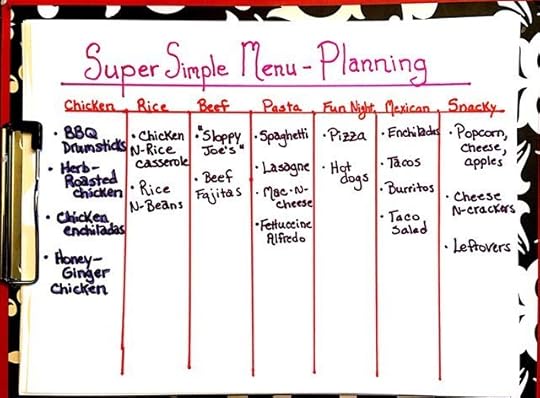 Super Simple Menu-Planning
Chicken
• BBQ
Drumsticks
• Herb-
Roasted
chicken
• Chicken
enchiladas
• Honey-
Ginger
Chicken
Rice
• Chicken
N-Rice
casserole
• Rice
N-Beans
Beef
• "Sloppy
Joe's"
• Beef
Fajitas
Pasta
• Spaghetti
• Lasagne
• Mac-N-
cheese
• Fettuccine
Alfredo
Fun Night
• Pizza
• Hot
dogs
Mexican
• Enchiladas
• Tacos
• Burritos
• Taco
Salad
Snacky
• Popcorn,
cheese,
apples
• Cheese
N-crackers
• Leftovers